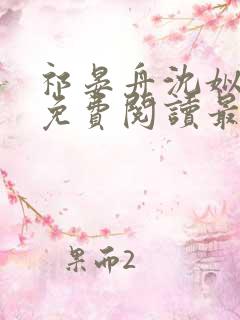 祁晏舟沈姒
免費閱讀最
果而2